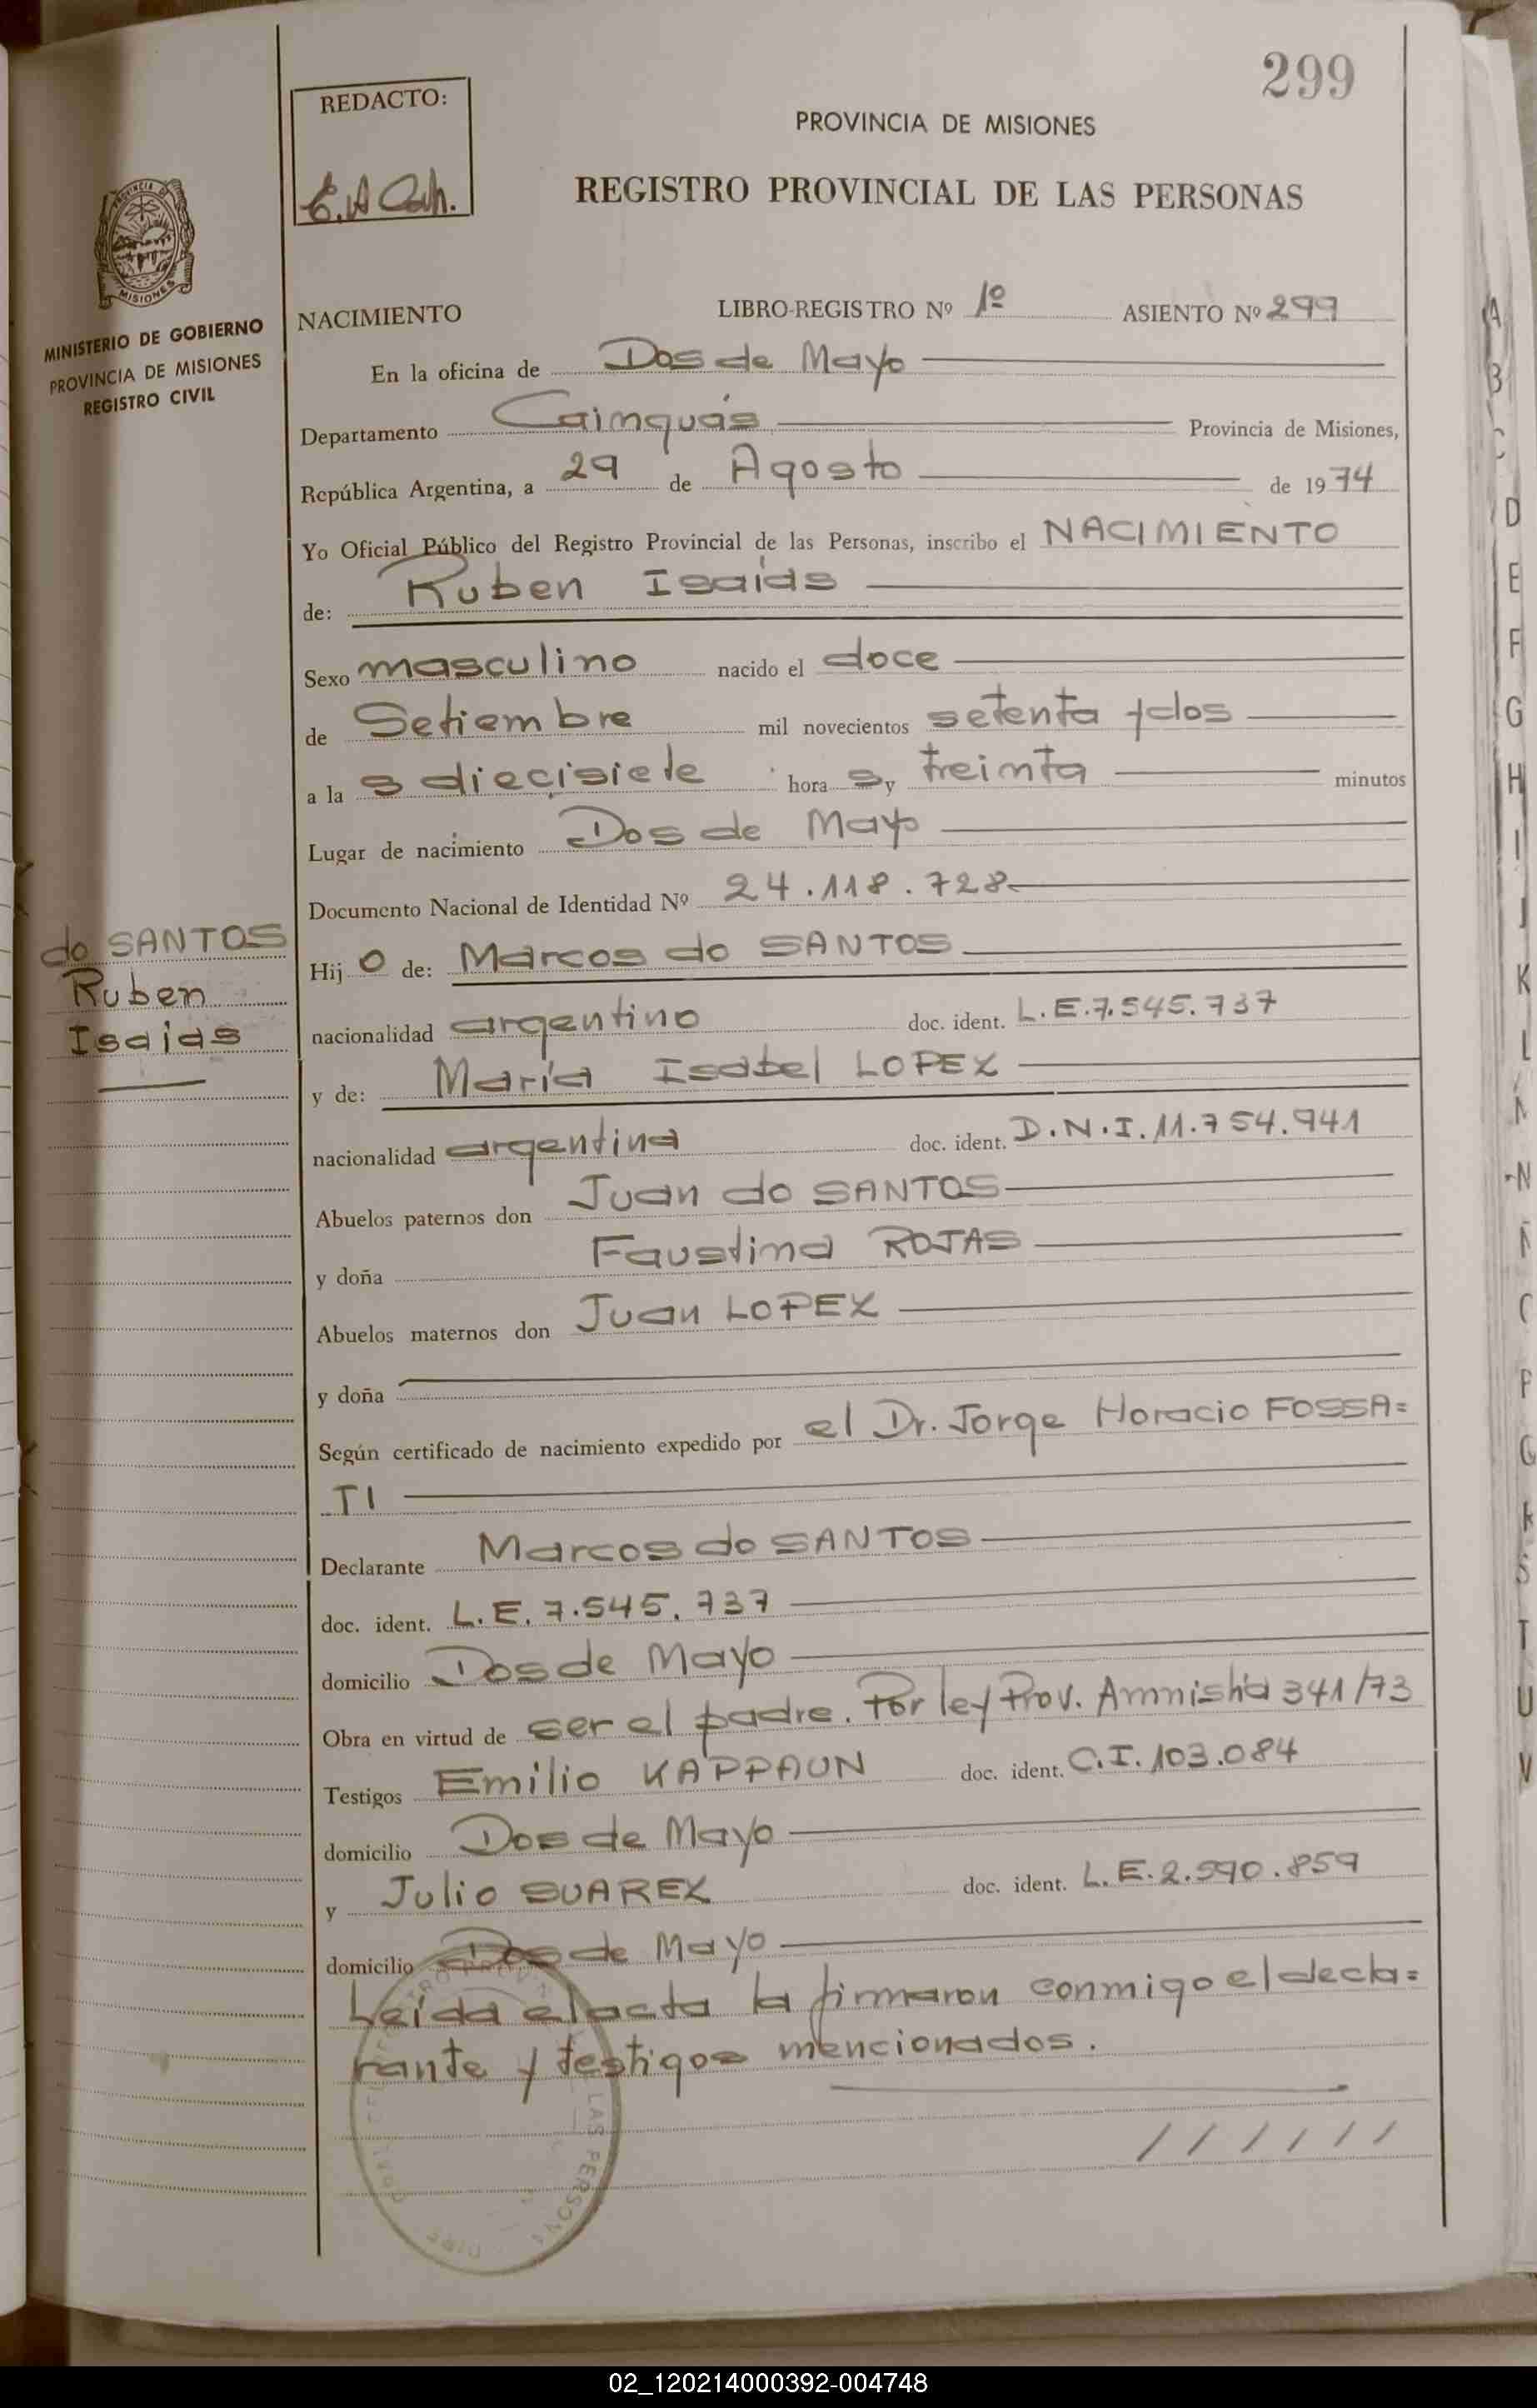 299
REDACTO:
PROVINCIA DE MISIONES
REGISTRO PROVINCIAL DE LAS PERSONAS
MISIONES
MINISTERIO DE GOBIERNO
PROVINCIA DE MISIONES
REGISTRO CIVIL
NACIMIENTO LIBRO-REGISTRO Nº 1º ASIENTO Nº 299
En la oficina de Dos de Mayo
Departamento Cainguás Provincia de Misiones,
República Argentina, a 29 de Agosto de 1974
Yo Oficial Público del Registro Provincial de las Personas, inscribo el NACIMIENTO
de: Ruben Isaías
Sexo masculino nacido el doce
de Setiembre mil novecientos setenta y dos
a la s diecisiete hora s y treinta minutos
Lugar de nacimiento Dos de Mayo
Documento Nacional de Identidad Nº 24.118.728
do SANTOS
Ruben
Isaias
Hij o de: Marcos do SANTOS
nacionalidad argentino doc. ident. L.E.7.545.737
y de: María Isabel LOPEZ
nacionalidad argentina doc. ident. D.N.I.11.754.941
Abuelos paternos don Juan do SANTOS
y doña Faustina ROJAS
Abuelos maternos don Juan LOPEZ
y doña
Según certificado de nacimiento expedido por el Dr. Jorge Horacio FOSSA=
TI
Declarante Marcos do SANTOS
doc. ident. L.E. 7.545.737
domicilio Dos de Mayo
Obra en virtud de ser el padre. Por ley Prov. Amnistía 341/73
Testigos Emilio KAPPAUN doc. ident. C.I.103.084
domicilio Dos de Mayo
y Julio SUAREZ doc. ident. L.E.2.590.859
domicilio Dos de Mayo
Leída el acta la firmaron conmigo el decla=
rante y testigos mencionados.
//////
02_120214000392-004748